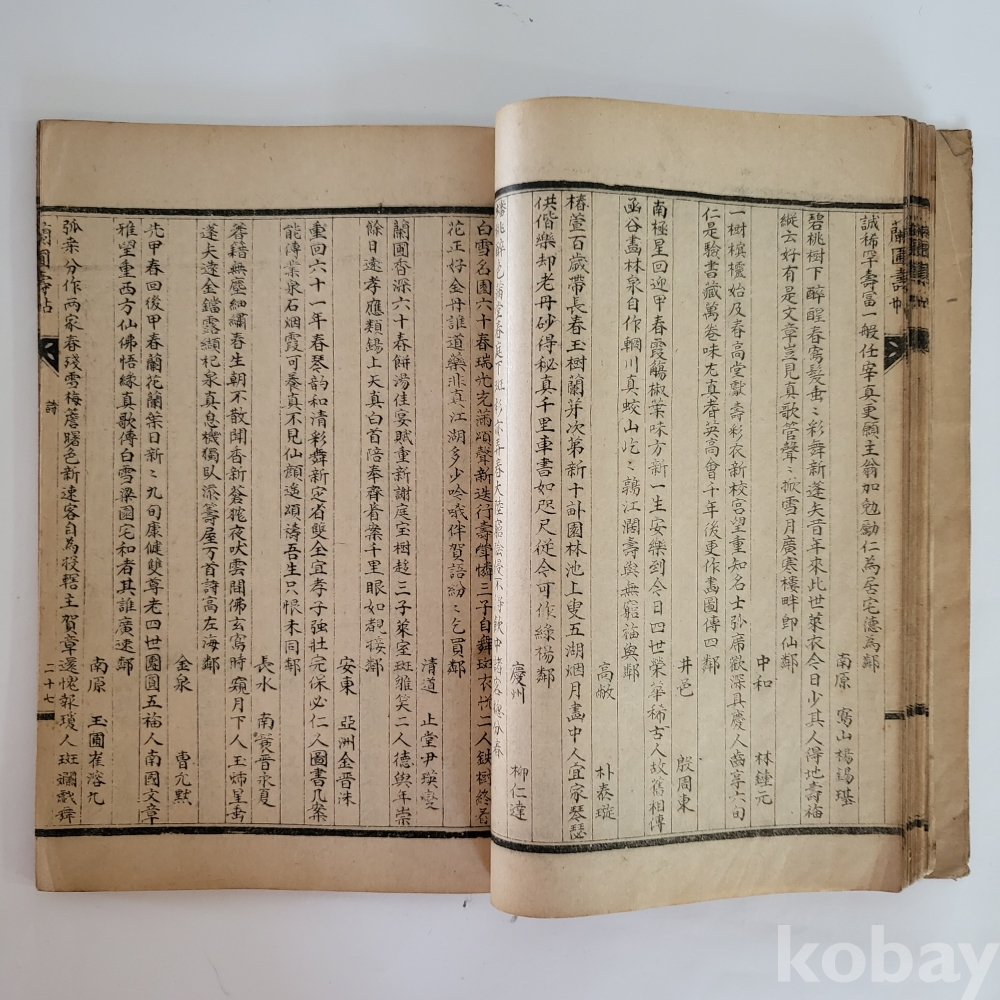 誠稀罕壽富一般任宰真更願主翁加勉勵仁為居宅德為鄰
南原 寫山楊錫
碧桃樹下醉醒春鸞髮垂〻彩舞新蓬矢昔年來此世萊衣今日少其人得地壽福
縱云好有是文章豈見真歌管聲〻掀雪月廣寒樓畔即仙鄰
中和 林鍾元
一樹檳櫨始及春高堂獻壽彩衣新校宮望重知名士弥席歡深具慶人齒享六旬
仁是驗書藏萬卷味尤真耆英高會千年後更作畵圖傳四鄰
井邑 殷周東
南極星回迎甲春霞觴椒葉味方新一生安樂到今日四世榮華稀古人故舊相傳
函谷畵林泉自作輞川真蛟山屹〻鶉江濶壽與無窮福與鄰
高敞 朴泰璇
椿萱百歲帶長春玉樹蘭芽次第新十畝園林池上叟五湖烟月畵中人宜家琴瑟
供偕樂却老丹砂得秘真千里車書如咫尺從今可作綠楊鄰
慶州 柳仁達
白雪名園六十春瑞光充滿頌聲新迭行壽擧憐三子自舞斑衣
花正好金丹誰道藥非真江湖多少吟哦伴賀語紛〻乞買鄰
清道 止堂尹瑛燮
蘭園香深六十春餠湯佳宴賦重新謝庭宝樹趍三子萊室斑雛笑二人德與年崇
餘日遠孝應類錫上天真白首陪奉齊眉案千里眼如覩接鄰
安東 亞洲金晋洙
重回六十一年春琴韵和清彩舞新定省雙全宜孝子強壯完保必仁人圖書几案
能傳業泉石烟霞可養真不見仙顔遙頌禱吾生只恨未同鄰
長水 南黃晋永夏
眷籍無塵細繡春生朝不散聞香新蒼狵夜吠雲間佛玄窩時窺月下人玉㶷星垂
蓬矢遠金鐺露纈杞泉真息機獨臥添籌屋万首詩高左海鄰
金泉 曹亢默
先甲春回後甲春蘭花蘭葉日新〻九旬康健雙尊老四世團圓五福人南國文章
雅望重西方仙佛悟緣真歌傳白雪梁園宅和者其誰廣速鄰
南原 玉圃崔溶九
弧帨分作兩家春殘雪梅簷曙色新速客自為投轄主賀章還愧報瓊人斑斕戲舞
蘭圃壽帖
詩
二十七
蘭圃壽帖
kobay